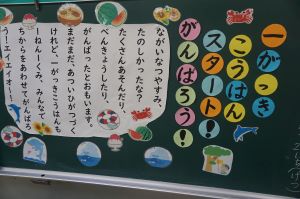 一がっき
こうはん
スタート!
がんばろう!
ながいなつやすみ、
たのしかったなあ。
たくさんあそんだり、
べんきょうしたり、
がんばったとおもいます。
まだまだ、あついひがつづく
けれど、一がっきこうはんも
一ねん一くみ、みんなで
ちからをあわせてがんばろ
う!エイエイオー!